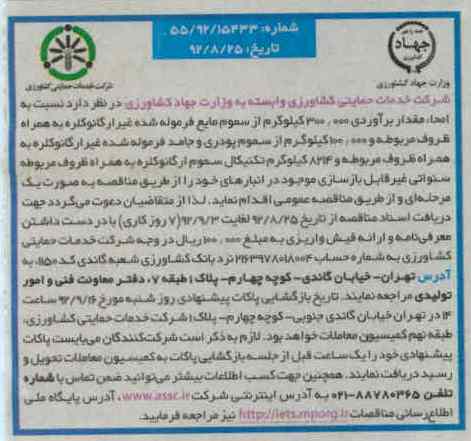 شماره: ۵۵/۹۲/۱۵۴۳۳
تاریخ: ۹۲/۸/۲۵
جهاد
وزارت جهاد کشاورزی
شرکت خدمات حمایتی کشاورزی
شرکت خدمات حمایتی کشاورزی وابسته به وزارت جهاد کشاورزی در نظر دارد نسبت به
امحاء مقدار برآوردی ۳۰۰٫۰۰۰ کیلوگرم از سموم مایع فرموله شده غیر ارگانوکلره به همراه
ظروف مربوطه و ۱۰۰٫۰۰۰ کیلوگرم از سموم پودری و جامد فرموله شده غیر ارگانوکلره به
همراه ظروف مربوطه و ۸۲۱۴ کیلوگرم تکنیکال سموم ارگانوکلره به همراه ظروف مربوطه
سنواتی غیرقابل بازسازی موجود در انبارهای خود را از طریق مناقصه به صورت یک
مرحله‌ای و از طریق مناقصه عمومی اقدام نماید. لذا از متقاضیان دعوت می‌گردد جهت
دریافت اسناد مناقصه از تاریخ ۹۲/۸/۲۵ لغایت ۹۲/۹/۳ (۷ روز کاری) با در دست داشتن
معرفی‌نامه و ارائه فیش واریزی به مبلغ ۱۰۰٫۰۰۰ ریال در وجه شرکت خدمات حمایتی
کشاورزی به شماره حساب نزد بانک کشاورزی شعبه گاندی کد ۱۱۵۰، به
آدرس تهران- خیابان گاندی- کوچه چهارم- پلاک ۱ طبقه ۷، دفتر معاونت فنی و امور
تولیدی مراجعه نمایند. تاریخ بازگشایی پاکات پیشنهادی روز شنبه مورخ ۹۲/۹/۱۶ ساعت
۱۴ در تهران خیابان گاندی جنوبی- کوچه چهارم- پلاک ۱ شرکت خدمات حمایتی کشاورزی،
طبقه نهم کمیسیون معاملات خواهد بود. لازم به ذکر است شرکت‌کنندگان می‌بایست پاکات
پیشنهادی خود را یک ساعت قبل از جلسه بازگشایی پاکات به کمیسیون معاملات تحویل و
رسید دریافت نمایند. همچنین جهت کسب اطلاعات بیشتر می‌توانید ضمن تماس با شماره
تلفن ۸۸۷۸۰۳۶۵-۰۲۱ به آدرس اینترنتی شرکت www.assc.ir، آدرس پایگاه ملی
اطلاع‌رسانی مناقصات http://iets.mporg.ir نیز مراجعه فرمایید.